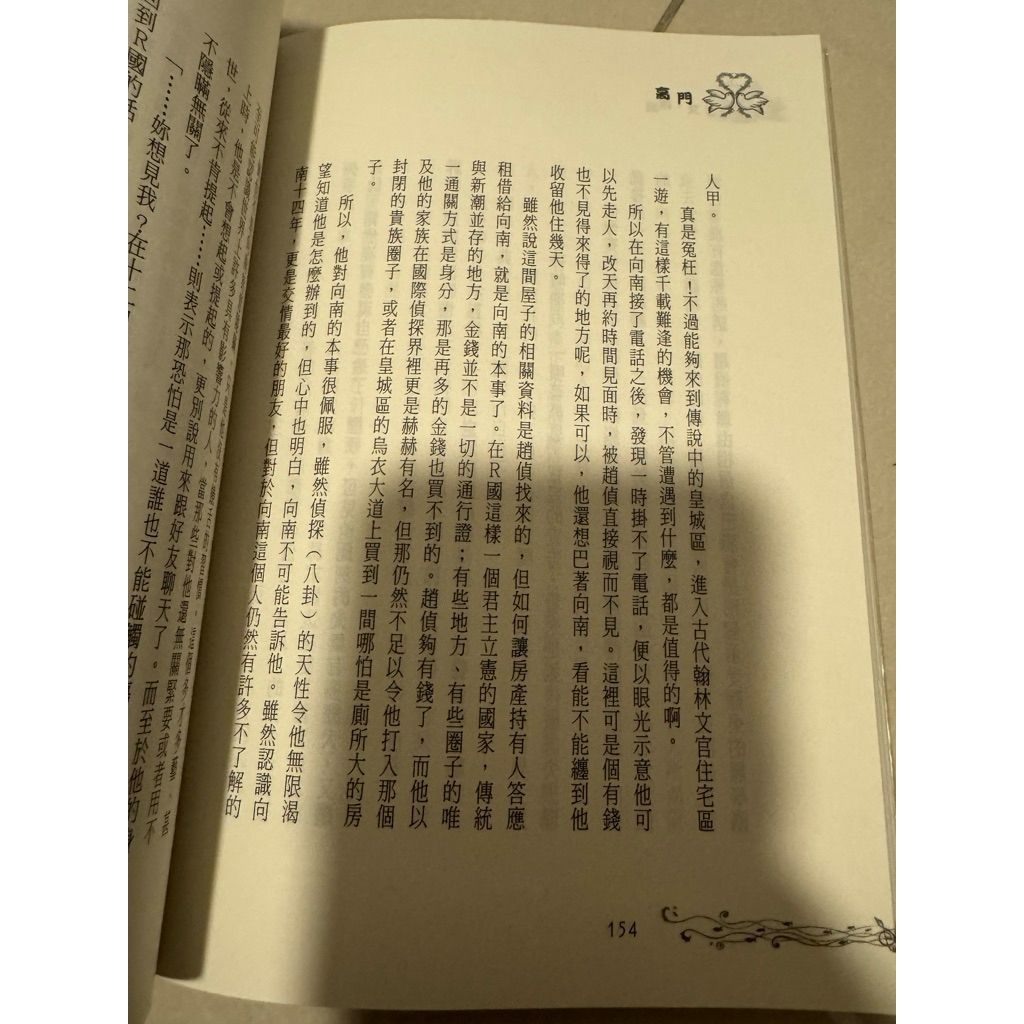 高門
人甲。
真是冤枉！不過能夠來到傳說中的皇城區，進入古代翰林文官住宅區
一遊，有這樣千載難逢的機會，不管遭遇到什麼，都是值得的啊。
所以在向南接了電話之後，發現一時掛不了電話，便以眼光示意他可
以先走人，改天再約時間見面時，被趙偵直接視而不見。這裡可是個有錢
也不見得來得了的地方呢，如果可以，他還想巴著向南，看能不能纏到他
收留他住幾天。
雖然說這間屋子的相關資料是趙偵找來的，但如何讓房產持有人答應
租借給向南，就是向南的本事了。在R國這樣一個君主立憲的國家，傳統
與新潮並存的地方，金錢並不是一切的通行證；有些地方、有些圈子的唯
一通關方式是身分，那是再多的金錢也買不到的。趙偵夠有錢了，而他以
及他的家族在國際偵探界裡更是赫赫有名，但那仍然不足以令他打入那個
封閉的貴族圈子，或者在皇城區的烏衣大道上買到一間哪怕是廁所大的房
子。
所以，他對向南的本事很佩服，雖然偵探（八卦）的天性令他無限渴
望知道他是怎麼辦到的，但心中也明白，向南不可能告訴他。雖然認識向
南十四年，更是交情最好的朋友，但對於向南這個人仍然有許多不了解的
154
上時，他是不會想起或提起的，更別說用來跟好友聊天了。而至於他的身
世，從來不肯提起……則表示那恐怕是一道誰也不能碰觸的
不隱瞞無關了。
「……妳想見我？在十二
到R國的話